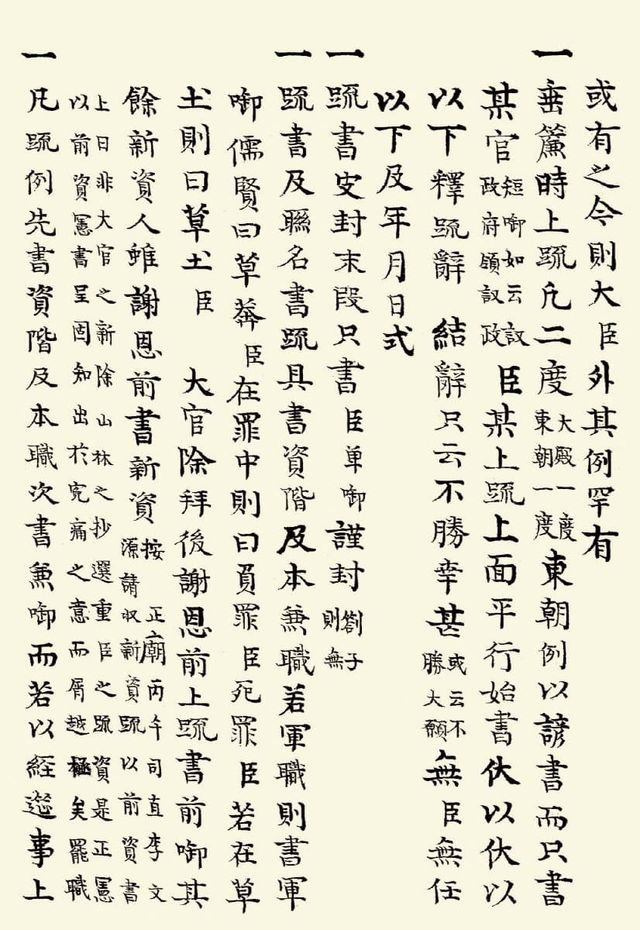 或有之令則大臣外其例罕有
一 垂簾時上䟽凡二度大殿一度東朝一度東朝例以諺書而只書
某官短啣如云議政府領議政臣某上䟽上面平行始書伏以伏以
以下釋䟽辭 結辭只云不勝幸甚或云不勝大願無臣無任
以下及年月日式
一 䟽書皮封末段只書臣單啣謹封箚子則無
一 䟽書及聯名書䟽具書資階及本兼職若軍職則書軍
啣儒賢曰草莽臣在罪中則曰負罪臣死罪臣若在草
土則曰草土臣 大官除拜後謝恩前上䟽書前啣其
餘新資人雖謝恩前書新資按 正廟丙午司直李文源請收新資䟽以前資書
上曰非大官之新除山林之抄選重臣之䟽資是正憲以前資憲書呈固知出於寃痛之意而屑越極矣罷職
一 凡䟽例先書資階及本職次書兼啣而若以經筵事上